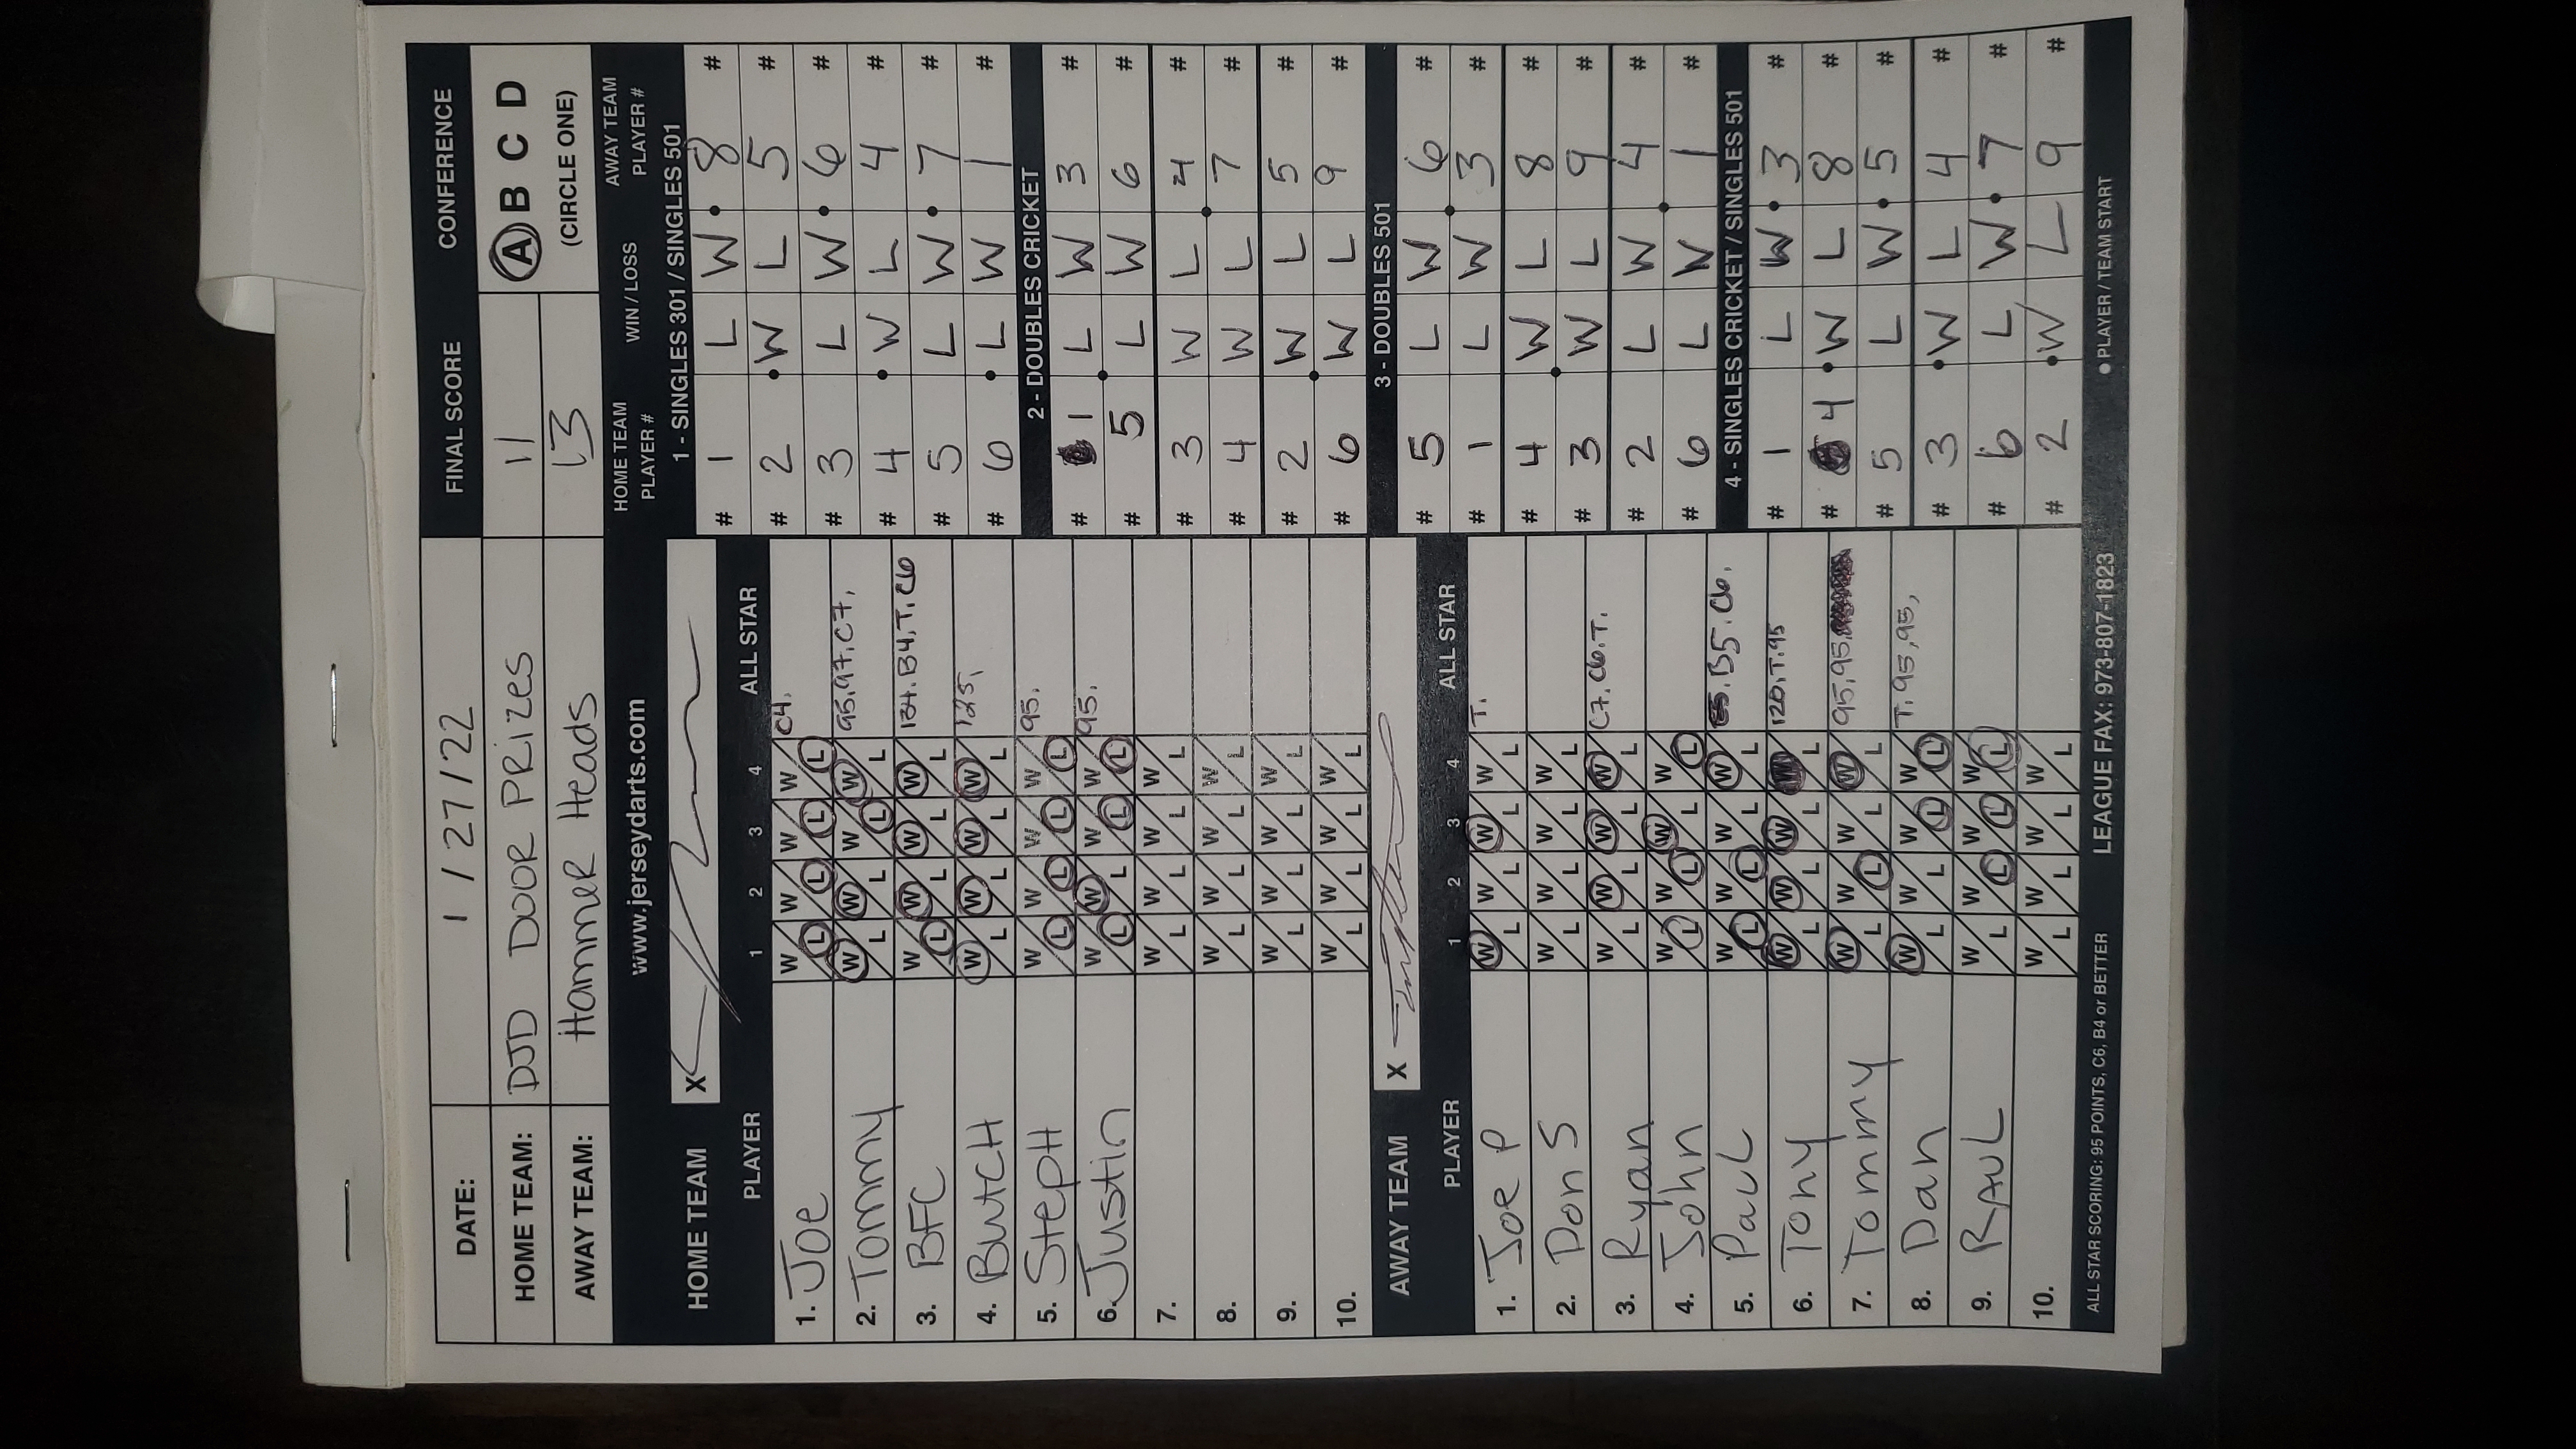 DATE: 1/27/22 FINAL SCORE CONFERENCE
HOME TEAM: DJD DOOR PRizes 11 A B C D
AWAY TEAM: Hammer Heads 13 (CIRCLE ONE)
www.jerseydarts.com
HOME TEAM X
PLAYER 1 2 3 4 ALL STAR
1. Joe W L W L W L W L C4.
2. Tommy W L W L W L W L 95.97.C7.
3. BFC W L W L W L W L 134.B4.T.C6
4. ButcH W L W L W L W L 125.
5. StepH W L W L W L W L 95.
6. Justin W L W L W L W L 95.
7. W L W L W L W L
8. W L W L W L W L
9. W L W L W L W L
10. W L W L W L W L
AWAY TEAM X
PLAYER 1 2 3 4 ALL STAR
1. Joe P W L W L W L W L T.
2. Don S W L W L W L W L
3. Ryan W L W L W L W L C7.C6.T.
4. John W L W L W L W L
5. PauL W L W L W L W L B5.C6.
6. Tony W L W L W L L 120.T.95
7. Tommy W L W L W L W L 95.95.
8. Dan W L W L W L W L T.95,95,
9. RAUL W L W L W L W L
10. W L W L W L W L
HOME TEAM PLAYER # WIN / LOSS AWAY TEAM PLAYER #
1 - SINGLES 301 / SINGLES 501
# 1 L W • 8 #
# 2 • W L 5 #
# 3 L W • 6 #
# 4 • W L 4 #
# 5 L W • 7 #
# 6 • L W 1 #
2 - DOUBLES CRICKET
# 1 L W 3 #
# 5 • L W 6 #
# 3 W L 4 #
# 4 W L • 7 #
# 2 W L 5 #
# 6 • W L 9 #
3 - DOUBLES 501
# 5 L W 6 #
# 1 L W • 3 #
# 4 W L 8 #
# 3 • W L 9 #
# 2 L W 4 #
# 6 L W • 1 #
4 - SINGLES CRICKET / SINGLES 501
# 1 L W • 3 #
# 4 • W L 8 #
# 5 L W • 5 #
# 3 • W L 4 #
# 6 L W • 7 #
# 2 • W L 9 #
ALL STAR SCORING: 95 POINTS, C6, B4 or BETTER LEAGUE FAX: 973-807-1823 • PLAYER / TEAM START